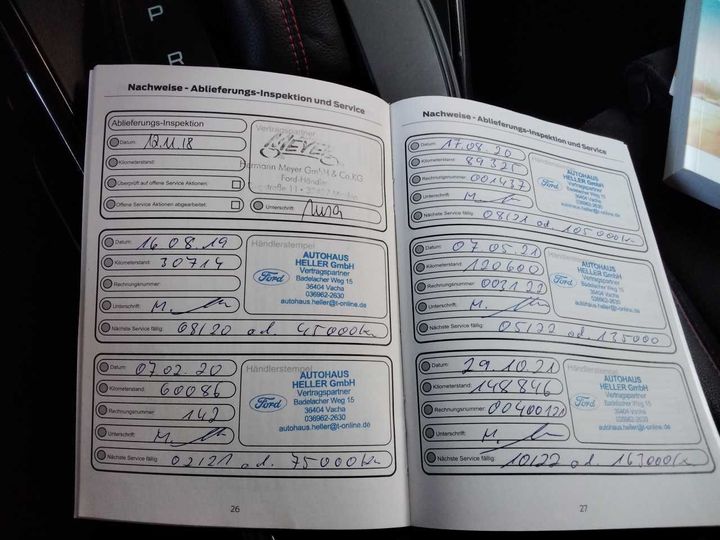 P
R
Nachweise - Ablieferungs-Inspektion und Service
Ablieferungs-Inspektion
Datum: 12.11.18
Kilometerstand:
Überprüft auf offene Service Aktionen:
Offene Service Aktionen abgearbeitet:
Vertragspartner
MEYER
Hermann Meyer GmbH & Co.KG
Ford-Händler
Unterschrift:
Datum: 16.08.19
Kilometerstand: 30714
Rechnungsnummer:
Unterschrift:
Nächste Service fällig: 08/20 od. 45000km
Händlerstempel
AUTOHAUS
HELLER GmbH
Vertragspartner
Badelacher Weg 15
36404 Vacha
036962-2630
autohaus.heller@t-online.de
Ford
Datum: 07.02.20
Kilometerstand: 60086
Rechnungsnummer: 142
Unterschrift:
Nächste Service fällig: 02/21 od. 75000km
Händlerstempel
AUTOHAUS
HELLER GmbH
Vertragspartner
Badelacher Weg 15
36404 Vacha
036962-2630
autohaus.heller@t-online.de
Ford
26
Nachweise - Ablieferungs-Inspektion und Service
Datum: 17.08.20
Kilometerstand: 89325
Rechnungsnummer: 001437
Unterschrift:
Nächste Service fällig: 08/21 od. 105000km
Händlerstempel
AUTOHAUS
HELLER GmbH
Vertragspartner
Badelacher Weg 15
36404 Vacha
036962-2630
autohaus.heller@t-online.de
Ford
Datum: 07.05.21
Kilometerstand: 120600
Rechnungsnummer: 003122
Unterschrift:
Nächste Service fällig: 05/22 od. 135000
Händlerstempel
AUTOHAUS
HELLER GmbH
Vertragspartner
Badelacher Weg 15
36404 Vacha
036962-2630
autohaus.heller@t-online.de
Ford
Datum: 29.10.21
Kilometerstand: 148846
Rechnungsnummer: 00400121
Unterschrift:
Nächste Service fällig: 10/22 od. 163000km
Händlerstempel
AUTOHAUS
HELLER GmbH
Vertragspartner
Badelacher Weg 15
36404 Vacha
036962-2630
autohaus.heller@t-online.de
Ford
27